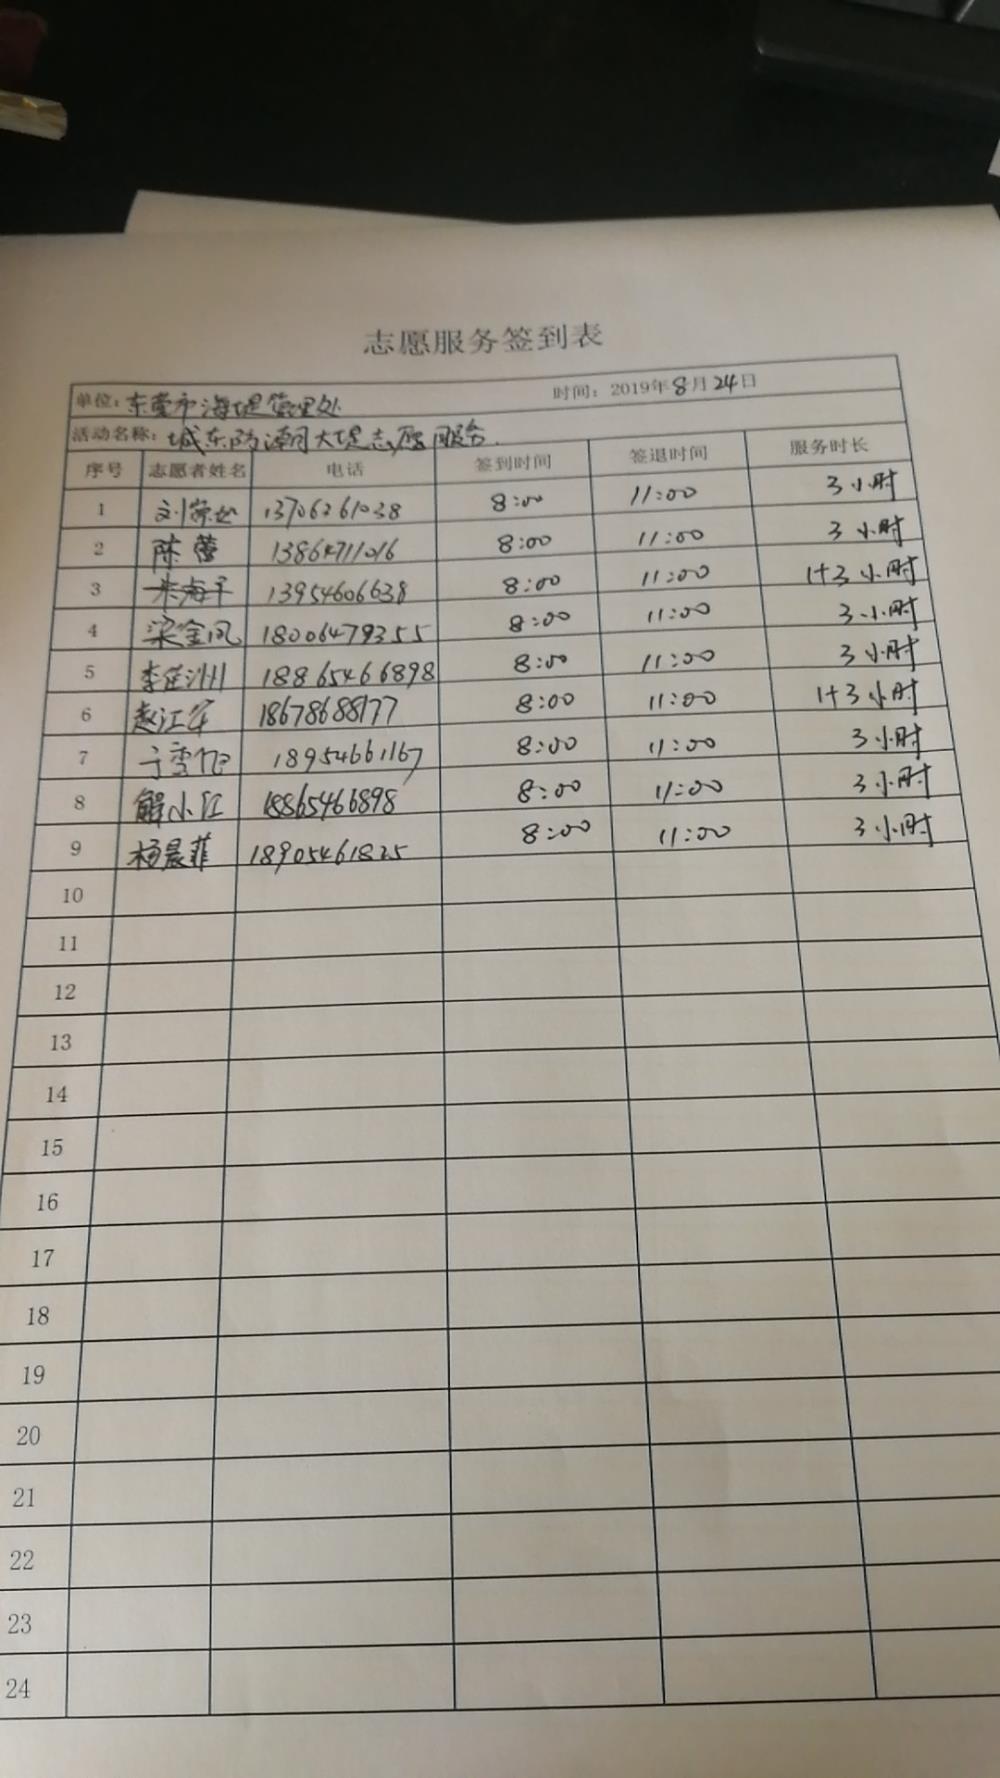 志愿服务签到表
单位：东营市海堤管理处 时间：2019年8月24日
活动名称：城东防潮大堤志愿服务
序号 志愿者姓名 电话 签到时间 签退时间 服务时长
1 刘 13706261038 8:00 11:00 3小时
2 陈蕾 13864711016 8:00 11:00 3小时
3 朱海平 13954606638 8:00 11:00 1+3小时
4 梁金凤 18006479355 8:00 11:00 3小时
5 李 州 18865466898 8:00 11:00 3小时
6 赵江军 18678688177 8:00 11:00 1+3小时
7 于雪 18954661167 8:00 11:00 3小时
8 解小江 18865466898 8:00 11:00 3小时
9 杨晨菲 18905461825 8:00 11:00 3小时
10
11
12
13
14
15
16
17
18
19
20
21
22
23
24